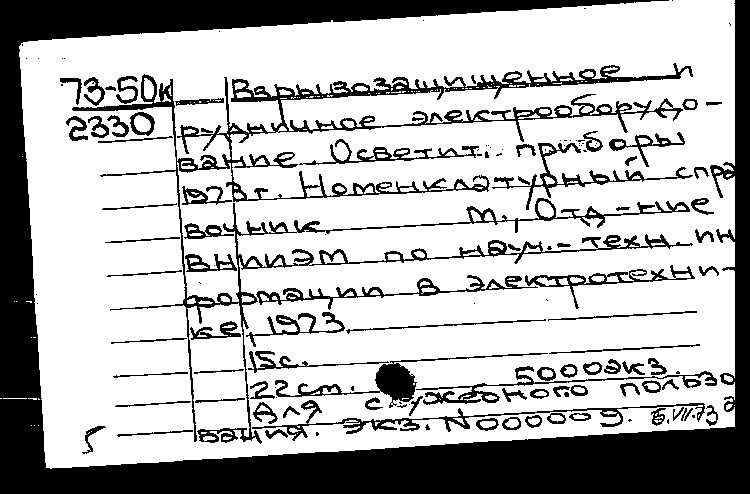 73-50к Взрывозащищенное и
2330 рудничное электрооборудо-
вание. Осветит. приборы
1973 г. Номенклатурный спра
вочник. М., Отд-ние
ВНИИЭМ по науч.-техн. ин
формации в электротехни-
ке, 1973.
15с.
22 см. 5000экз.
Для служебного пользо
вания. Экз. N000009. 6.VII.73
5